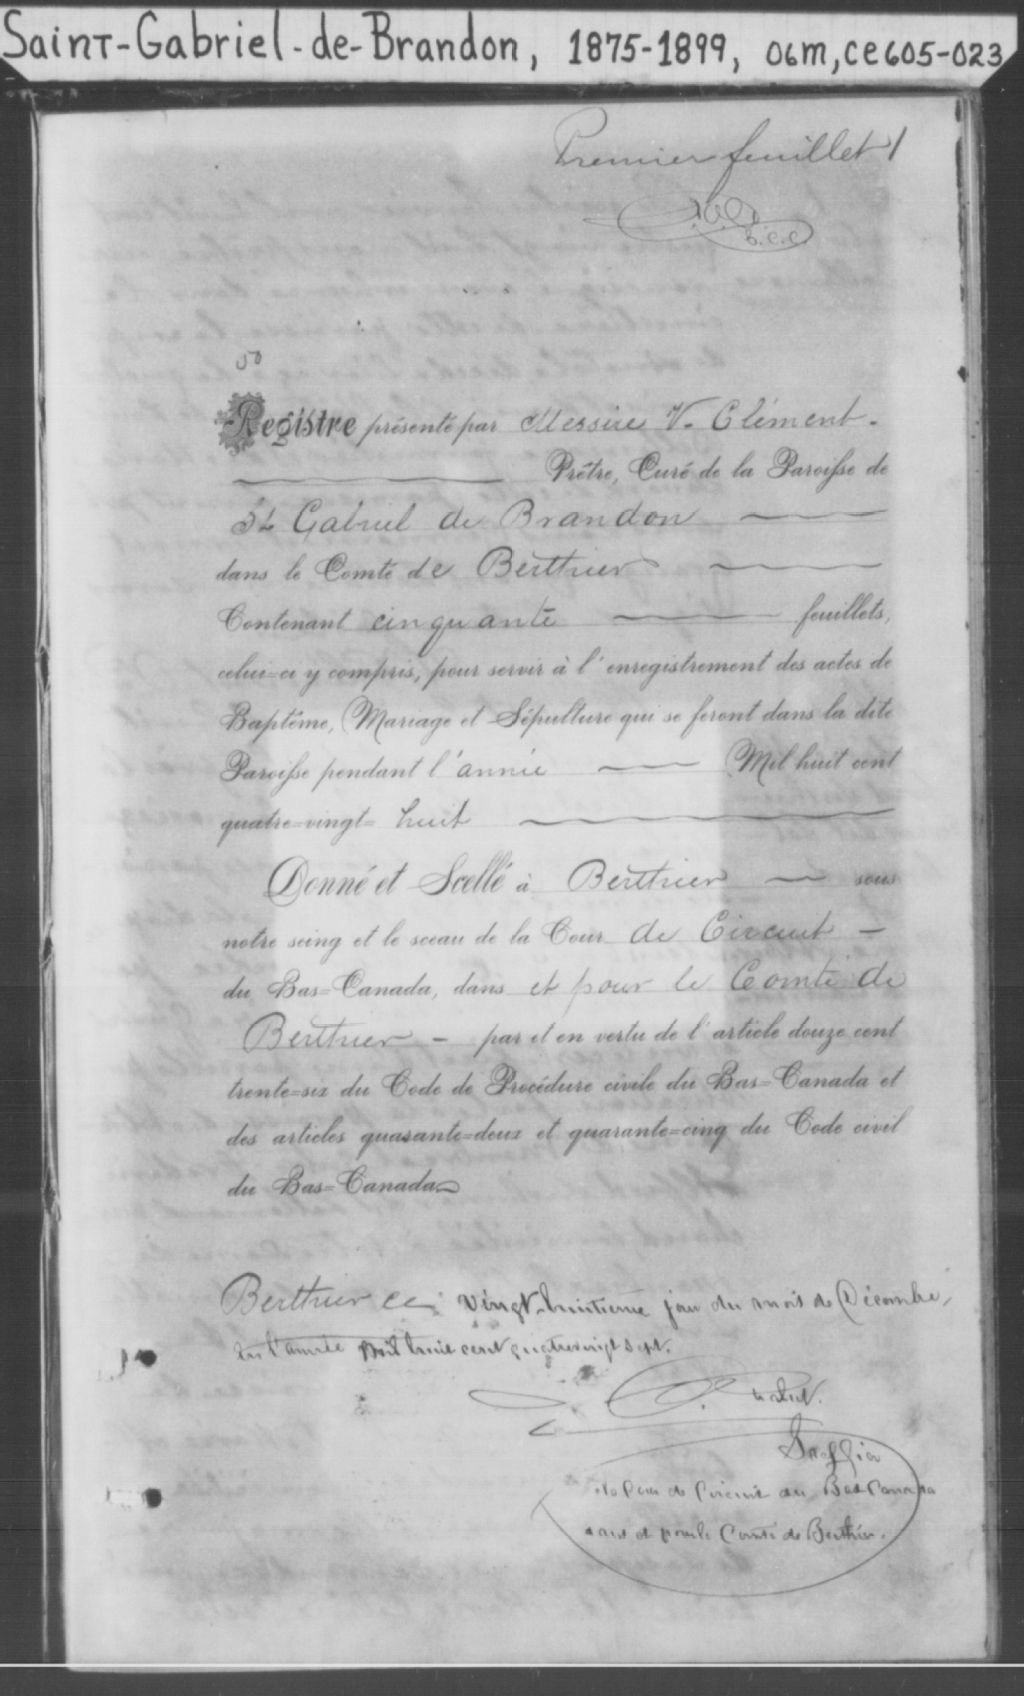 Saint-Gabriel-de-Brandon, 1875-1899, 06m, ce605-023
Premier feuillet 1
B.C.C.
50
Registre présenté par Messire V. Clément.
Prêtre, Curé de la Paroisse de
St Gabriel de Brandon
dans le Comté de Berthier
Contenant cinquante feuillets,
celui=ci y compris, pour servir à l'enregistrement des actes de
Baptême, Mariage et Sépulture qui se feront dans la dite
Paroisse pendant l'année Mil huit cent
quatre=vingt=huit
Donné et Scellé à Berthier sous
notre seing et le sceau de la Cour de Circuit -
du Bas=Canada, dans et pour le Comté de
Berthier - par et en vertu de l'article douze cent
trente=six du Code de Procédure civile du Bas=Canada et
des articles quarante=deux et quarante=cinq du Code civil
du Bas=Canada
Berthier ce vingt-huitième jour du mois de Décembre,
en l'année mil huit cent quatrevingt sept.
Greffier
de la Cour de Circuit du Bas Canada
dans et pour le Comté de Berthier.